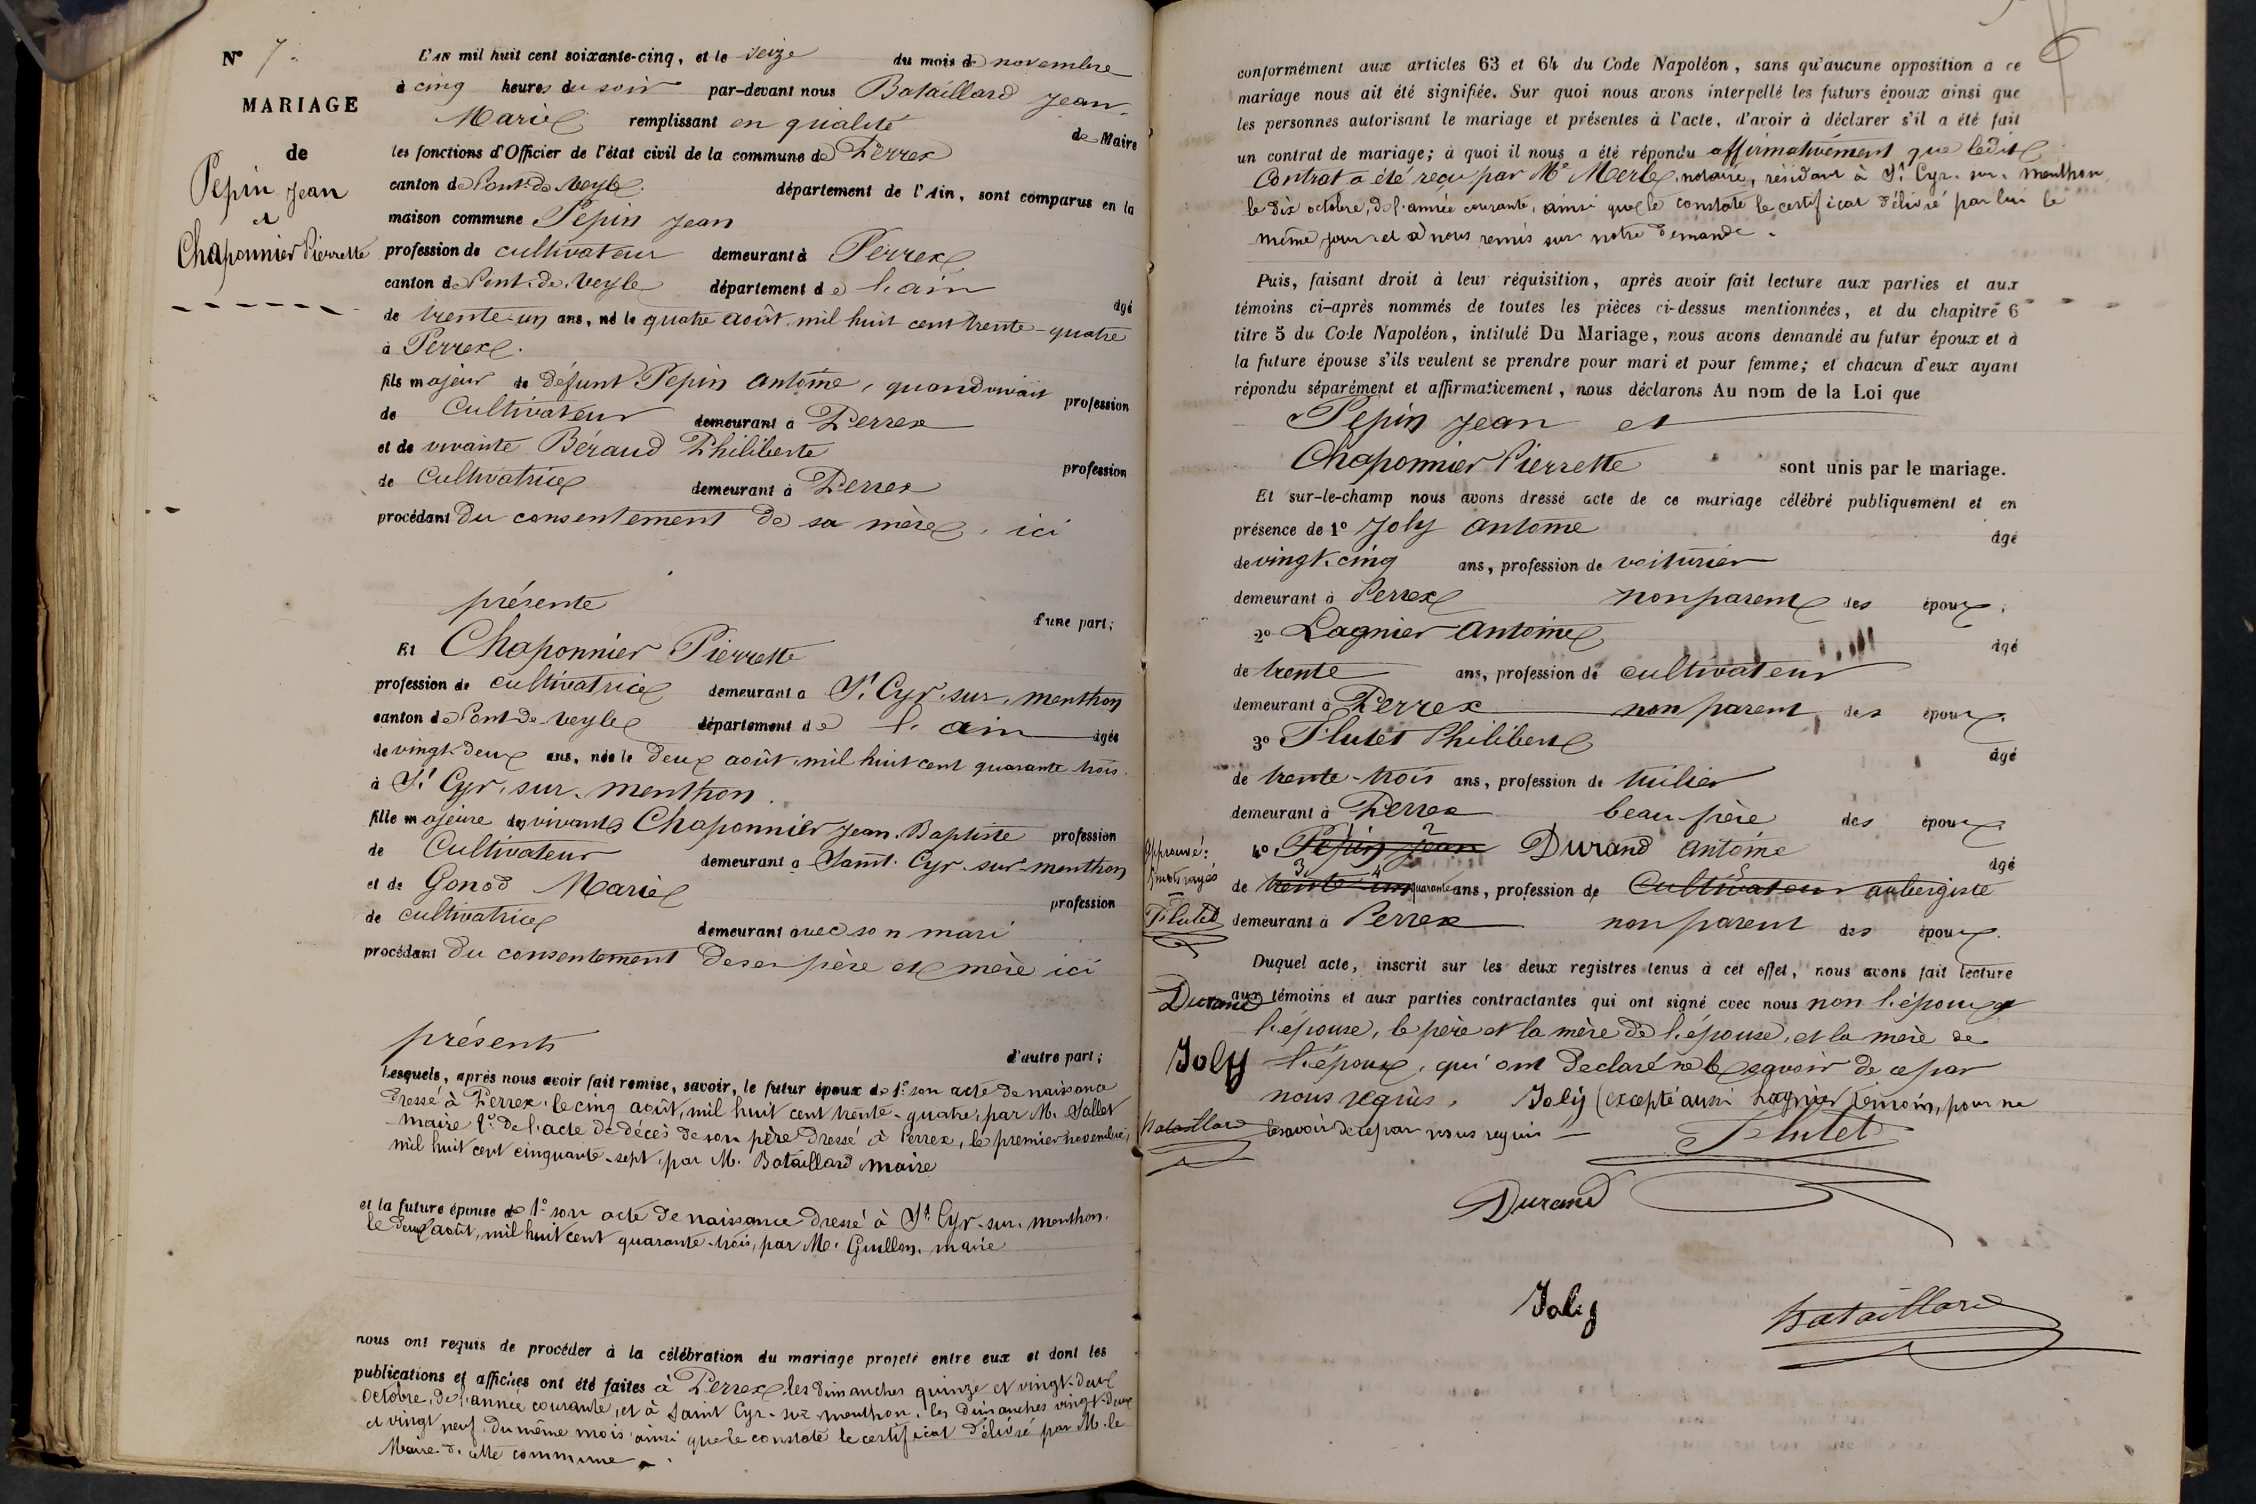 N° 7.
MARIAGE
de
Pepin Jean
et
Chaponnier Pierrette
L'AN mil huit cent soixante-cinq, et le seize du mois de novembre
à cinq heures du soir par-devant nous Bataillard Jean
Marie remplissant en qualité de Maire
les fonctions d'Officier de l'état civil de la commune de Perrex
canton de Pont-de-Veyle. département de l'Ain, sont comparus en la
maison commune Pepin Jean
profession de cultivateur demeurant à Perrex
canton de Pont-de-Veyle département de l'ain âgé
de trente-un ans, né le quatre août, mil huit cent trente-quatre
à Perrex.
fils majeur de défunt Pepin antoine, quand vivait profession
de Cultivateur demeurant à Perrex
et de vivante Béraud Philiberte profession
de Cultivatrice demeurant à Perrex
procédant du consentement de sa mère, ici
présente d'une part;
Et Chaponnier Pierrette
profession de cultivatrice demeurant à St Cyr-sur-menthon
canton de Pont-de-Veyle département de l'ain âgée
de vingt-deux ans, née le deux août, mil huit cent quarante trois.
à St Cyr-sur-menthon.
fille majeure des vivants Chaponnier Jean-Baptiste profession
de Cultivateur demeurant à Saint-Cyr-sur-menthon
et de Gonod Marie profession
de cultivatrice demeurant avec son mari
procédant du consentement de ses père et mère ici
présents d'autre part;
Lesquels, après nous avoir fait remise, savoir, le futur époux de 1° son acte de naissance
dressé à Perrex, le cinq août, mil huit cent trente-quatre, par M. Sallet
maire 2° de l'acte de décès de son père dressé à Perrex, le premier novembre,
mil huit cent cinquante-sept, par M. Bataillard maire
et la future épouse de 1° son acte de naissance dressé à St Cyr-sur-menthon,
le deux août, mil huit cent quarante-trois, par M. Guillon, maire
nous ont requis de procéder à la célébration du mariage projeté entre eux et dont les
publications et affiches ont été faites à Perrex, les dimanches quinze et vingt-deux
Octobre, de l'année courante, et à Saint Cyr-sur-menthon, les dimanches vingt-deux
et vingt neuf du même mois ainsi que le constate le certificat délivré par M. le
Maire de cette commune.
conformément aux articles 63 et 64 du Code Napoléon, sans qu'aucune opposition a ce
mariage nous ait été signifiée. Sur quoi nous avons interpellé les futurs époux ainsi que
les personnes autorisant le mariage et présentes à l'acte, d'avoir à déclarer s'il a été fait
un contrat de mariage; à quoi il nous a été répondu affirmativement que ledit
Contrat a été reçu par Me Merle, notaire, résidant à St Cyr-sur-menthon,
le dix octobre, de l'année courante, ainsi que le constate le certificat délivré par lui le
même jour et à nous remis sur notre demande.
Puis, faisant droit à leur réquisition, après avoir fait lecture aux parties et aux
témoins ci-après nommés de toutes les pièces ci-dessus mentionnées, et du chapitre 6
titre 5 du Code Napoléon, intitulé Du Mariage, nous avons demandé au futur époux et à
la future épouse s'ils veulent se prendre pour mari et pour femme; et chacun d'eux ayant
répondu séparément et affirmativement, nous déclarons Au nom de la Loi que
Pepin Jean et
Chaponnier Pierrette sont unis par le mariage.
Et sur-le-champ nous avons dressé acte de ce mariage célébré publiquement et en
présence de 1° Joly antoine âgé
de vingt-cinq ans, profession de voiturier
demeurant à Perrex non parent des époux,
2° Lagnier antoine âgé
de trente ans, profession de cultivateur
demeurant à Perrex non parent, des époux,
3° Flutet Philibert âgé
de trente-trois ans, profession de tuilier
demeurant à Perrex beau frère des époux
4° Pepin Jean Durand antoine âgé
de trente-un quarante ans, profession de Cultivateur aubergiste
demeurant à Perrex non parent des époux.
Approuvé:
5 mots rayés
Flutet
Durand
Joly
Bataillard
Duquel acte, inscrit sur les deux registres tenus à cet effet, nous avons fait lecture
aux témoins et aux parties contractantes qui ont signé avec nous non l'époux et
l'épouse, le père et la mère de l'épouse, et la mère de
l'époux, qui ont déclaré ne le savoir de ce par
nous requis, Joly (excepté aussi Lagnier, témoin, pour ne
le savoir de ce par nous requis
Flutet
Durand
Joly
Bataillard